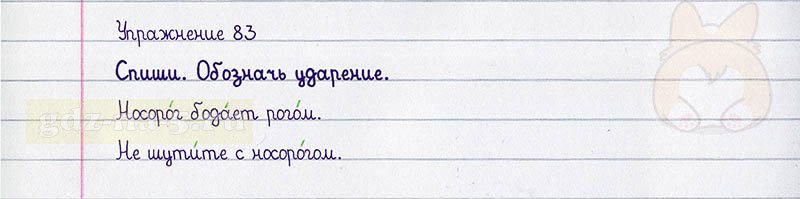 Упражнение 83
Спиши. Обозначь ударение.
Носоро́г бода́ет рого́м.
Не шути́те с носоро́гом.